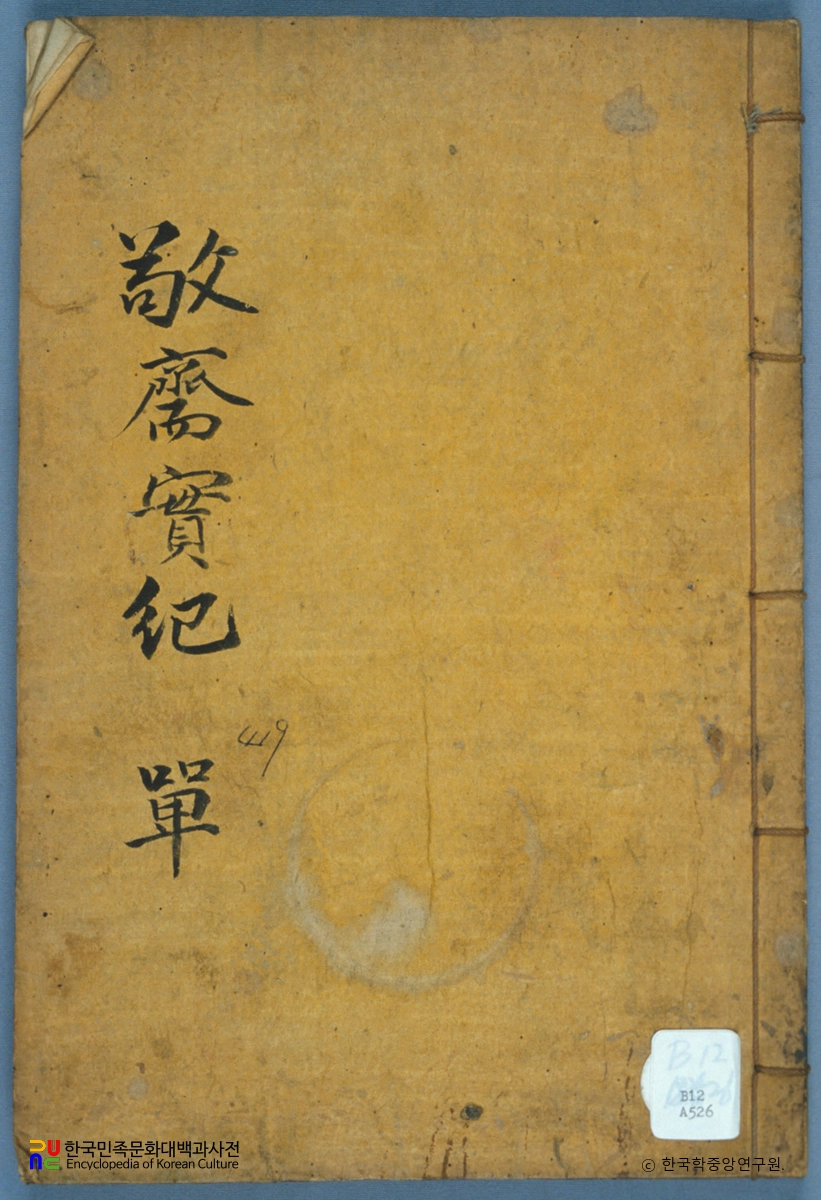 敬齋實紀 單
419
B12
B12
A526
한국민족문화대백과사전
Encyclopedia of Korean Culture
ⓒ 한국학중앙연구원.